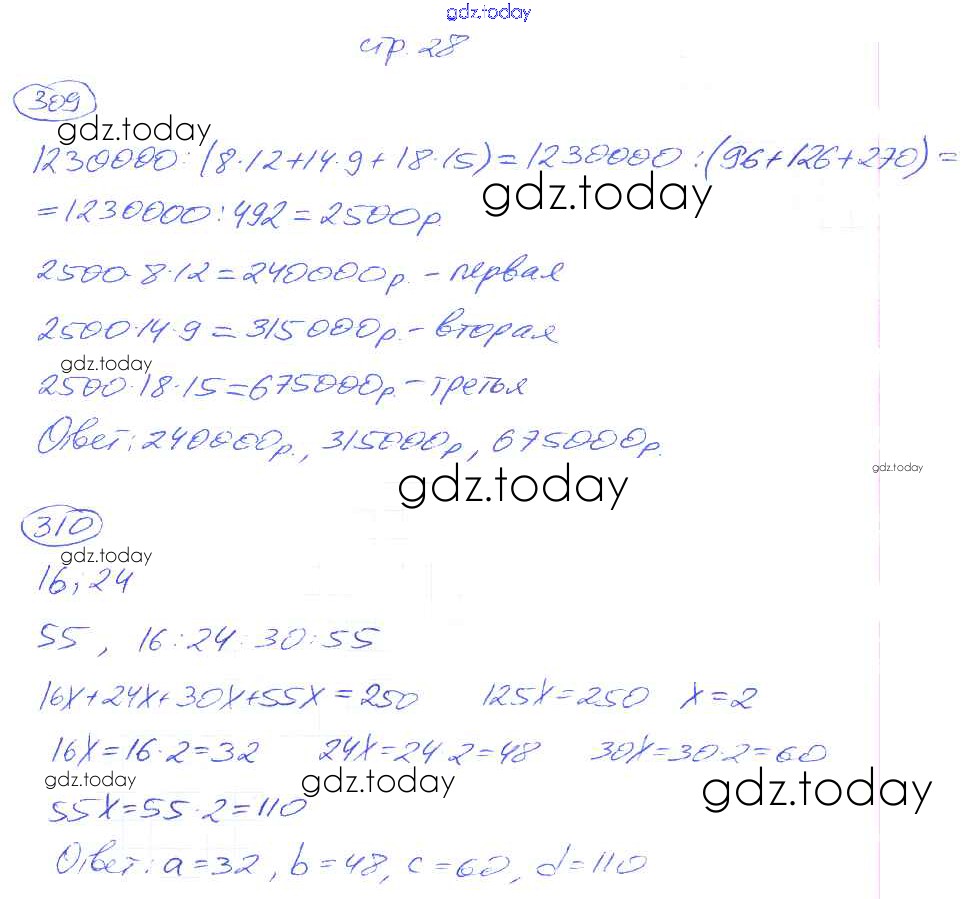 gdz.today
стр. 28
309
gdz.today
1230000:(8·12+14·9+18·15)=1230000:(96+126+270)=
gdz.today
=1230000:492=2500р.
2500·8·12=240000р.-первая
2500·14·9=315000р.-вторая
gdz.today
2500·18·15=675000р.-третья
Ответ: 240000р., 315000р, 675000р.
gdz.today
gdz.today
310
gdz.today
16; 24
55, 16:24:30:55
16x+24x+30x+55x=250 125x=250 x=2
16x=16·2=32 24x=24·2=48 30x=30·2=60
gdz.today gdz.today gdz.today
55x=55·2=110
Ответ: a=32, b=48, c=60, d=110